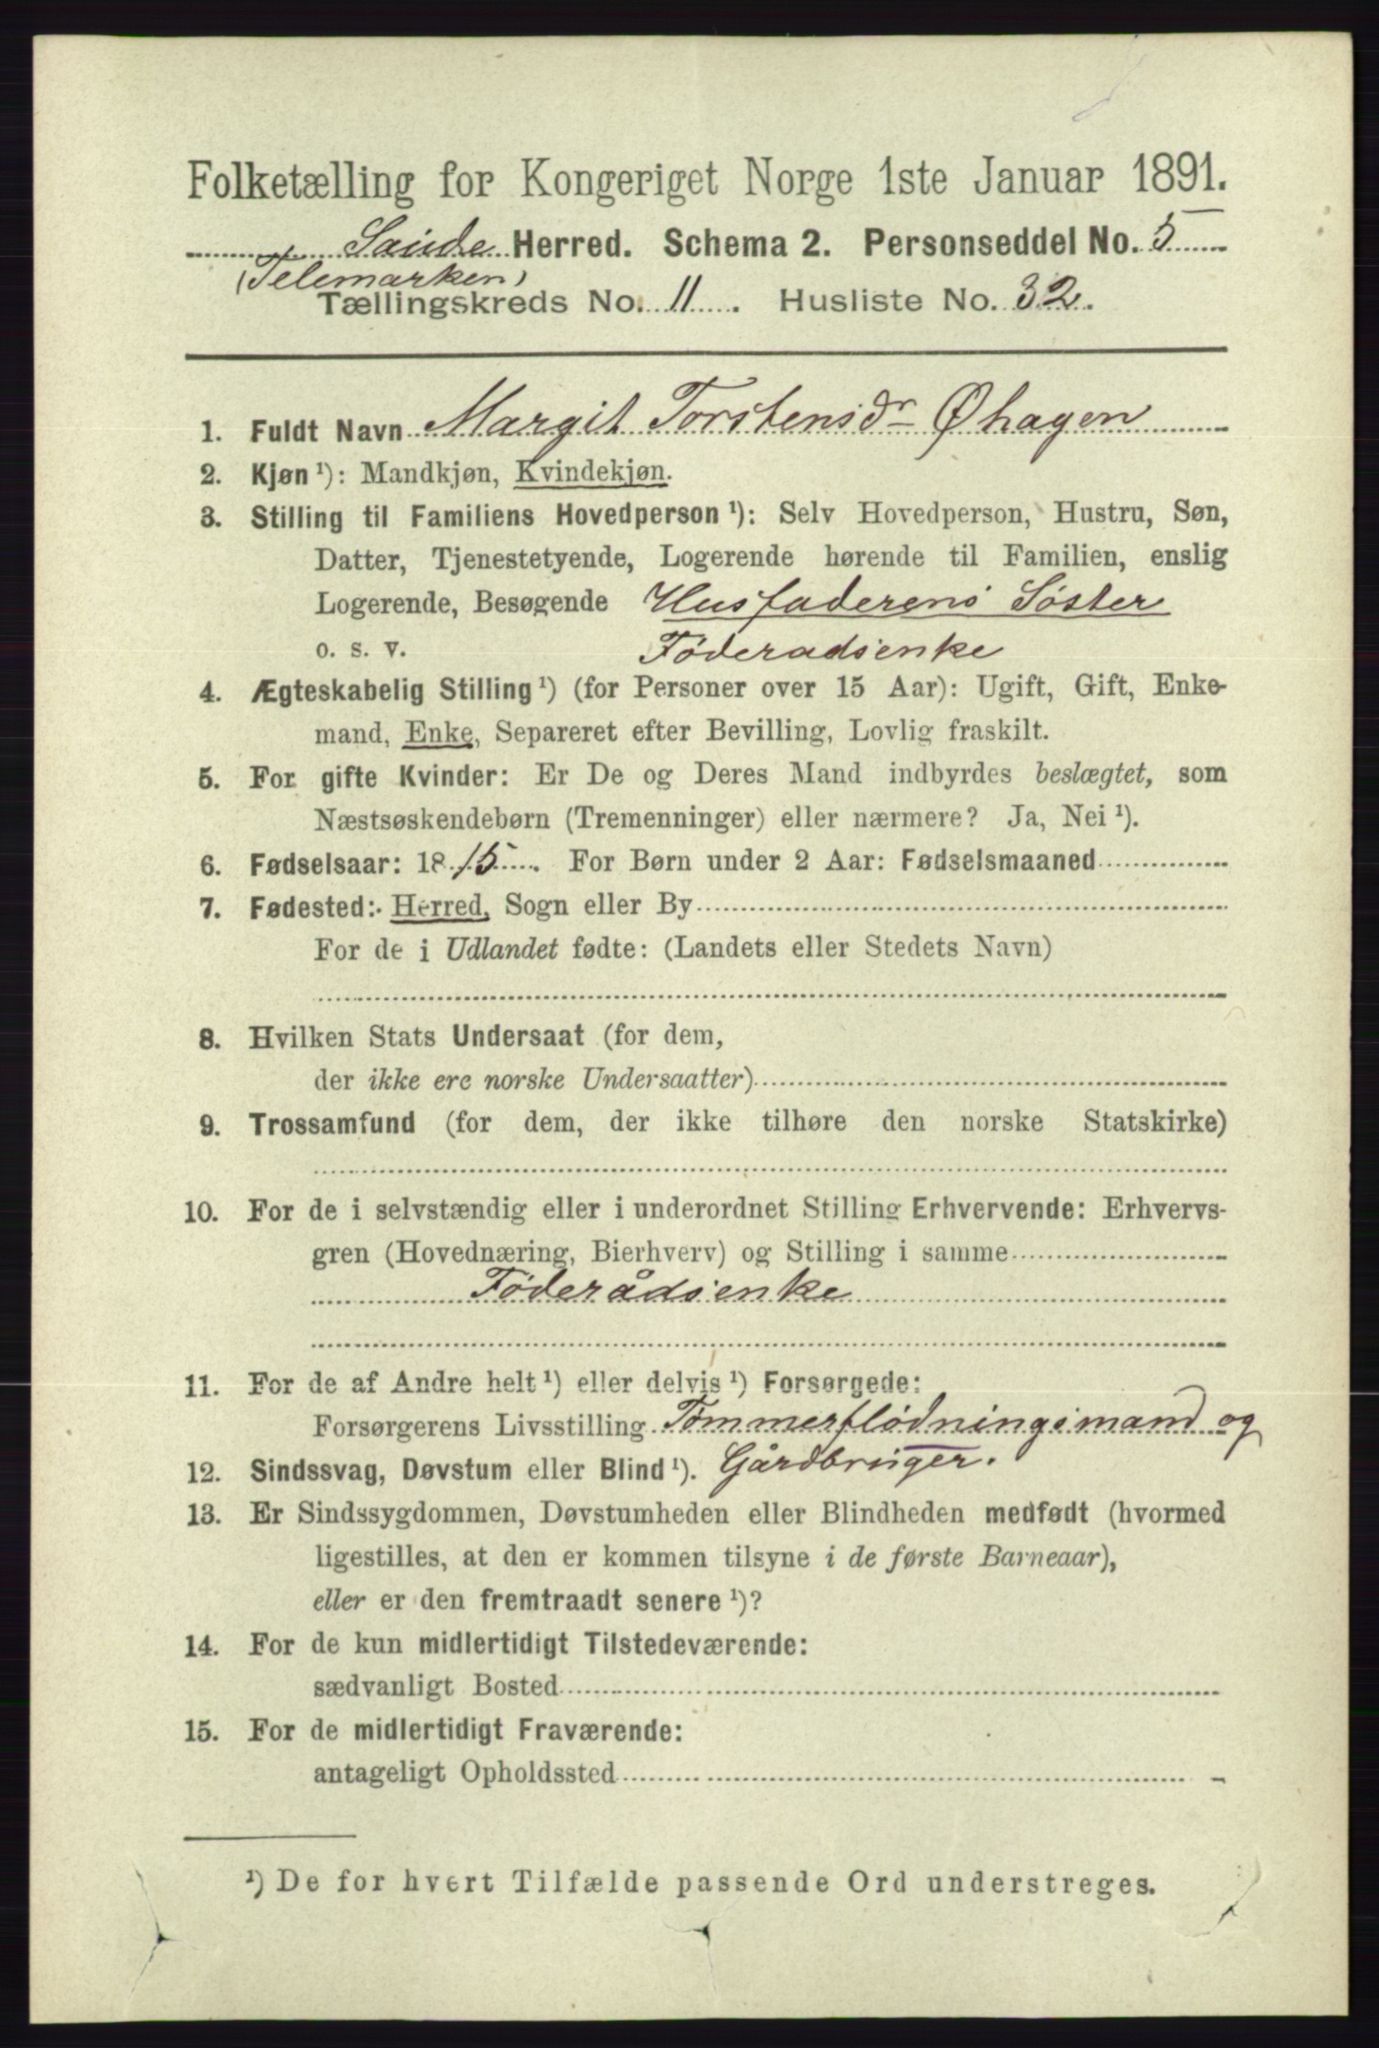 Folketælling for Kongeriget Norge 1ste Januar 1891.
Saude Herred. Schema 2. Personseddel No. 5
(Telemarken)
Tællingskreds No. 11. Husliste No. 32.
1. Fuldt Navn Margit Torstensdr Øhagen
2. Kjøn ¹): Mandkjøn, Kvindekjøn.
3. Stilling til Familiens Hovedperson ¹): Selv Hovedperson, Hustru, Søn,
Datter, Tjenestetyende, Logerende hørende til Familien, enslig
Logerende, Besøgende Husfaderens Søster
o. s. v. Föderadsenke
4. Ægteskabelig Stilling ¹) (for Personer over 15 Aar): Ugift, Gift, Enke-
mand, Enke, Separeret efter Bevilling, Lovlig fraskilt.
5. For gifte Kvinder: Er De og Deres Mand indbyrdes beslægtet, som
Næstsøskendebørn (Tremenninger) eller nærmere? Ja, Nei ¹).
6. Fødselsaar: 1815. For Børn under 2 Aar: Fødselsmaaned
7. Fødested: Herred, Sogn eller By
For de i Udlandet fødte: (Landets eller Stedets Navn)
8. Hvilken Stats Undersaat (for dem,
der ikke ere norske Undersaatter)
9. Trossamfund (for dem, der ikke tilhøre den norske Statskirke)
10. For de i selvstændig eller i underordnet Stilling Erhvervende: Erhvervs-
gren (Hovednæring, Bierhverv) og Stilling i samme
Föderådsenke
11. For de af Andre helt ¹) eller delvis ¹) Forsørgede:
Forsørgerens Livsstilling Tömmerflödningsmand og
12. Sindssvag, Døvstum eller Blind ¹). Gårdbruger.
13. Er Sindssygdommen, Døvstumheden eller Blindheden medfødt (hvormed
ligestilles, at den er kommen tilsyne i de første Barneaar),
eller er den fremtraadt senere ¹)?
14. For de kun midlertidigt Tilstedeværende:
sædvanligt Bosted
15. For de midlertidigt Fraværende:
antageligt Opholdssted
¹) De for hvert Tilfælde passende Ord understreges.